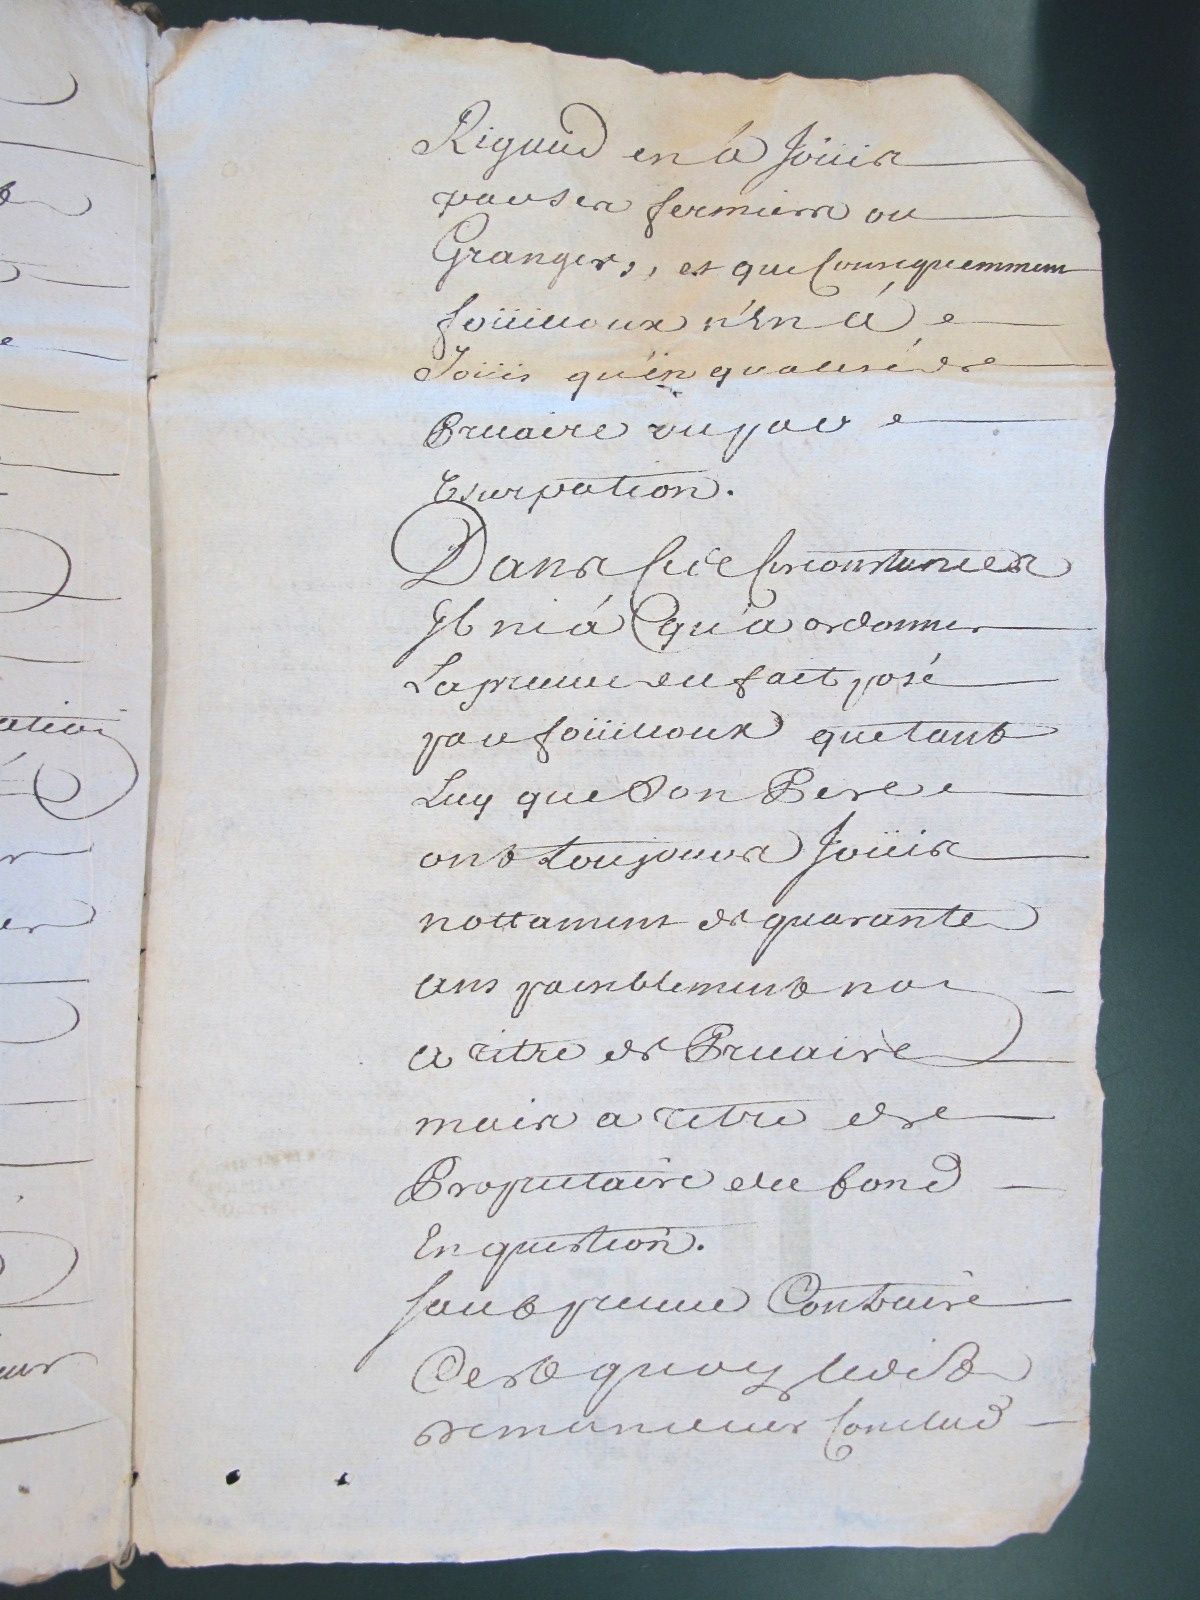 Rigaud en a Joüir
par ses fermiers ou
Grangers, et que Consequemment
foüilloux n'en a
Joüis qu'en qualité de
Precaire ou par
Usurpation.
Dans Ces Circonstances
Il ni a qu'a ordonner
La preuve du fait posé
par foüilloux que tant
Luy que Son Pere
ont toujours Joüir
nottament de quarante
ans paisiblement non
a titre de Precaire
mais a titre de
Proprietaire du fond
En question.
Sauf preuve Contraire
Cest a quoy ledit
demandeur Conclud